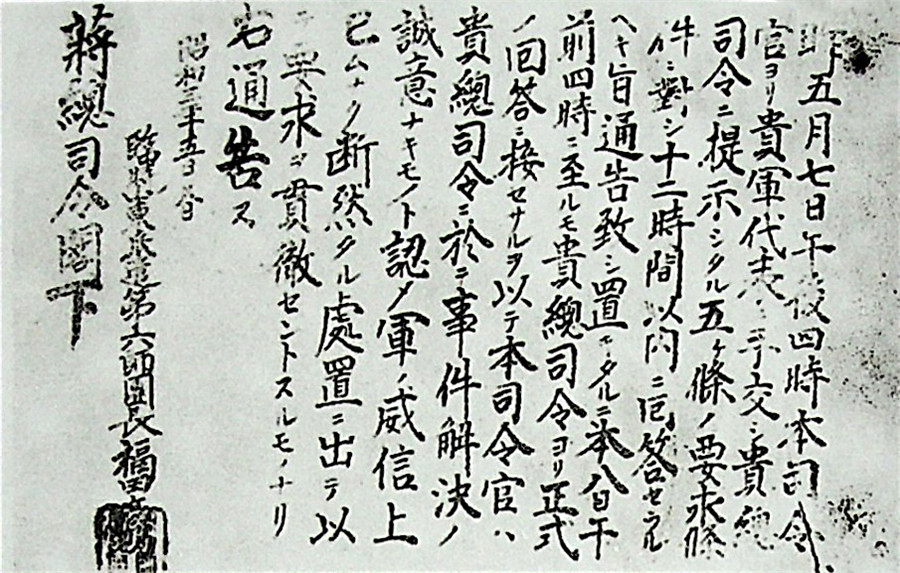 昨五月七日午後四時本司令
官ヨリ貴軍代表ニ手交シ貴總
司令ニ提示シタル五ヶ條ノ要求條
件ニ對シ十二時間以内ニ回答セラル
ヘキ旨通告致シ置キタルニ本八日午
前四時ニ至ルモ貴總司令ヨリ正式
ノ回答ニ接セサルヲ以テ本司令官ハ
貴總司令ニ於テ事件解決ノ
誠意ナキモノト認メ軍ノ威信上
已ムナク断然タル處置ニ出テ以
テ要求ヲ貫徹セントスルモノナリ
右通告ス
昭和三年五月八日
臨時山東派遣第六師團長福田
蔣總司令閣下